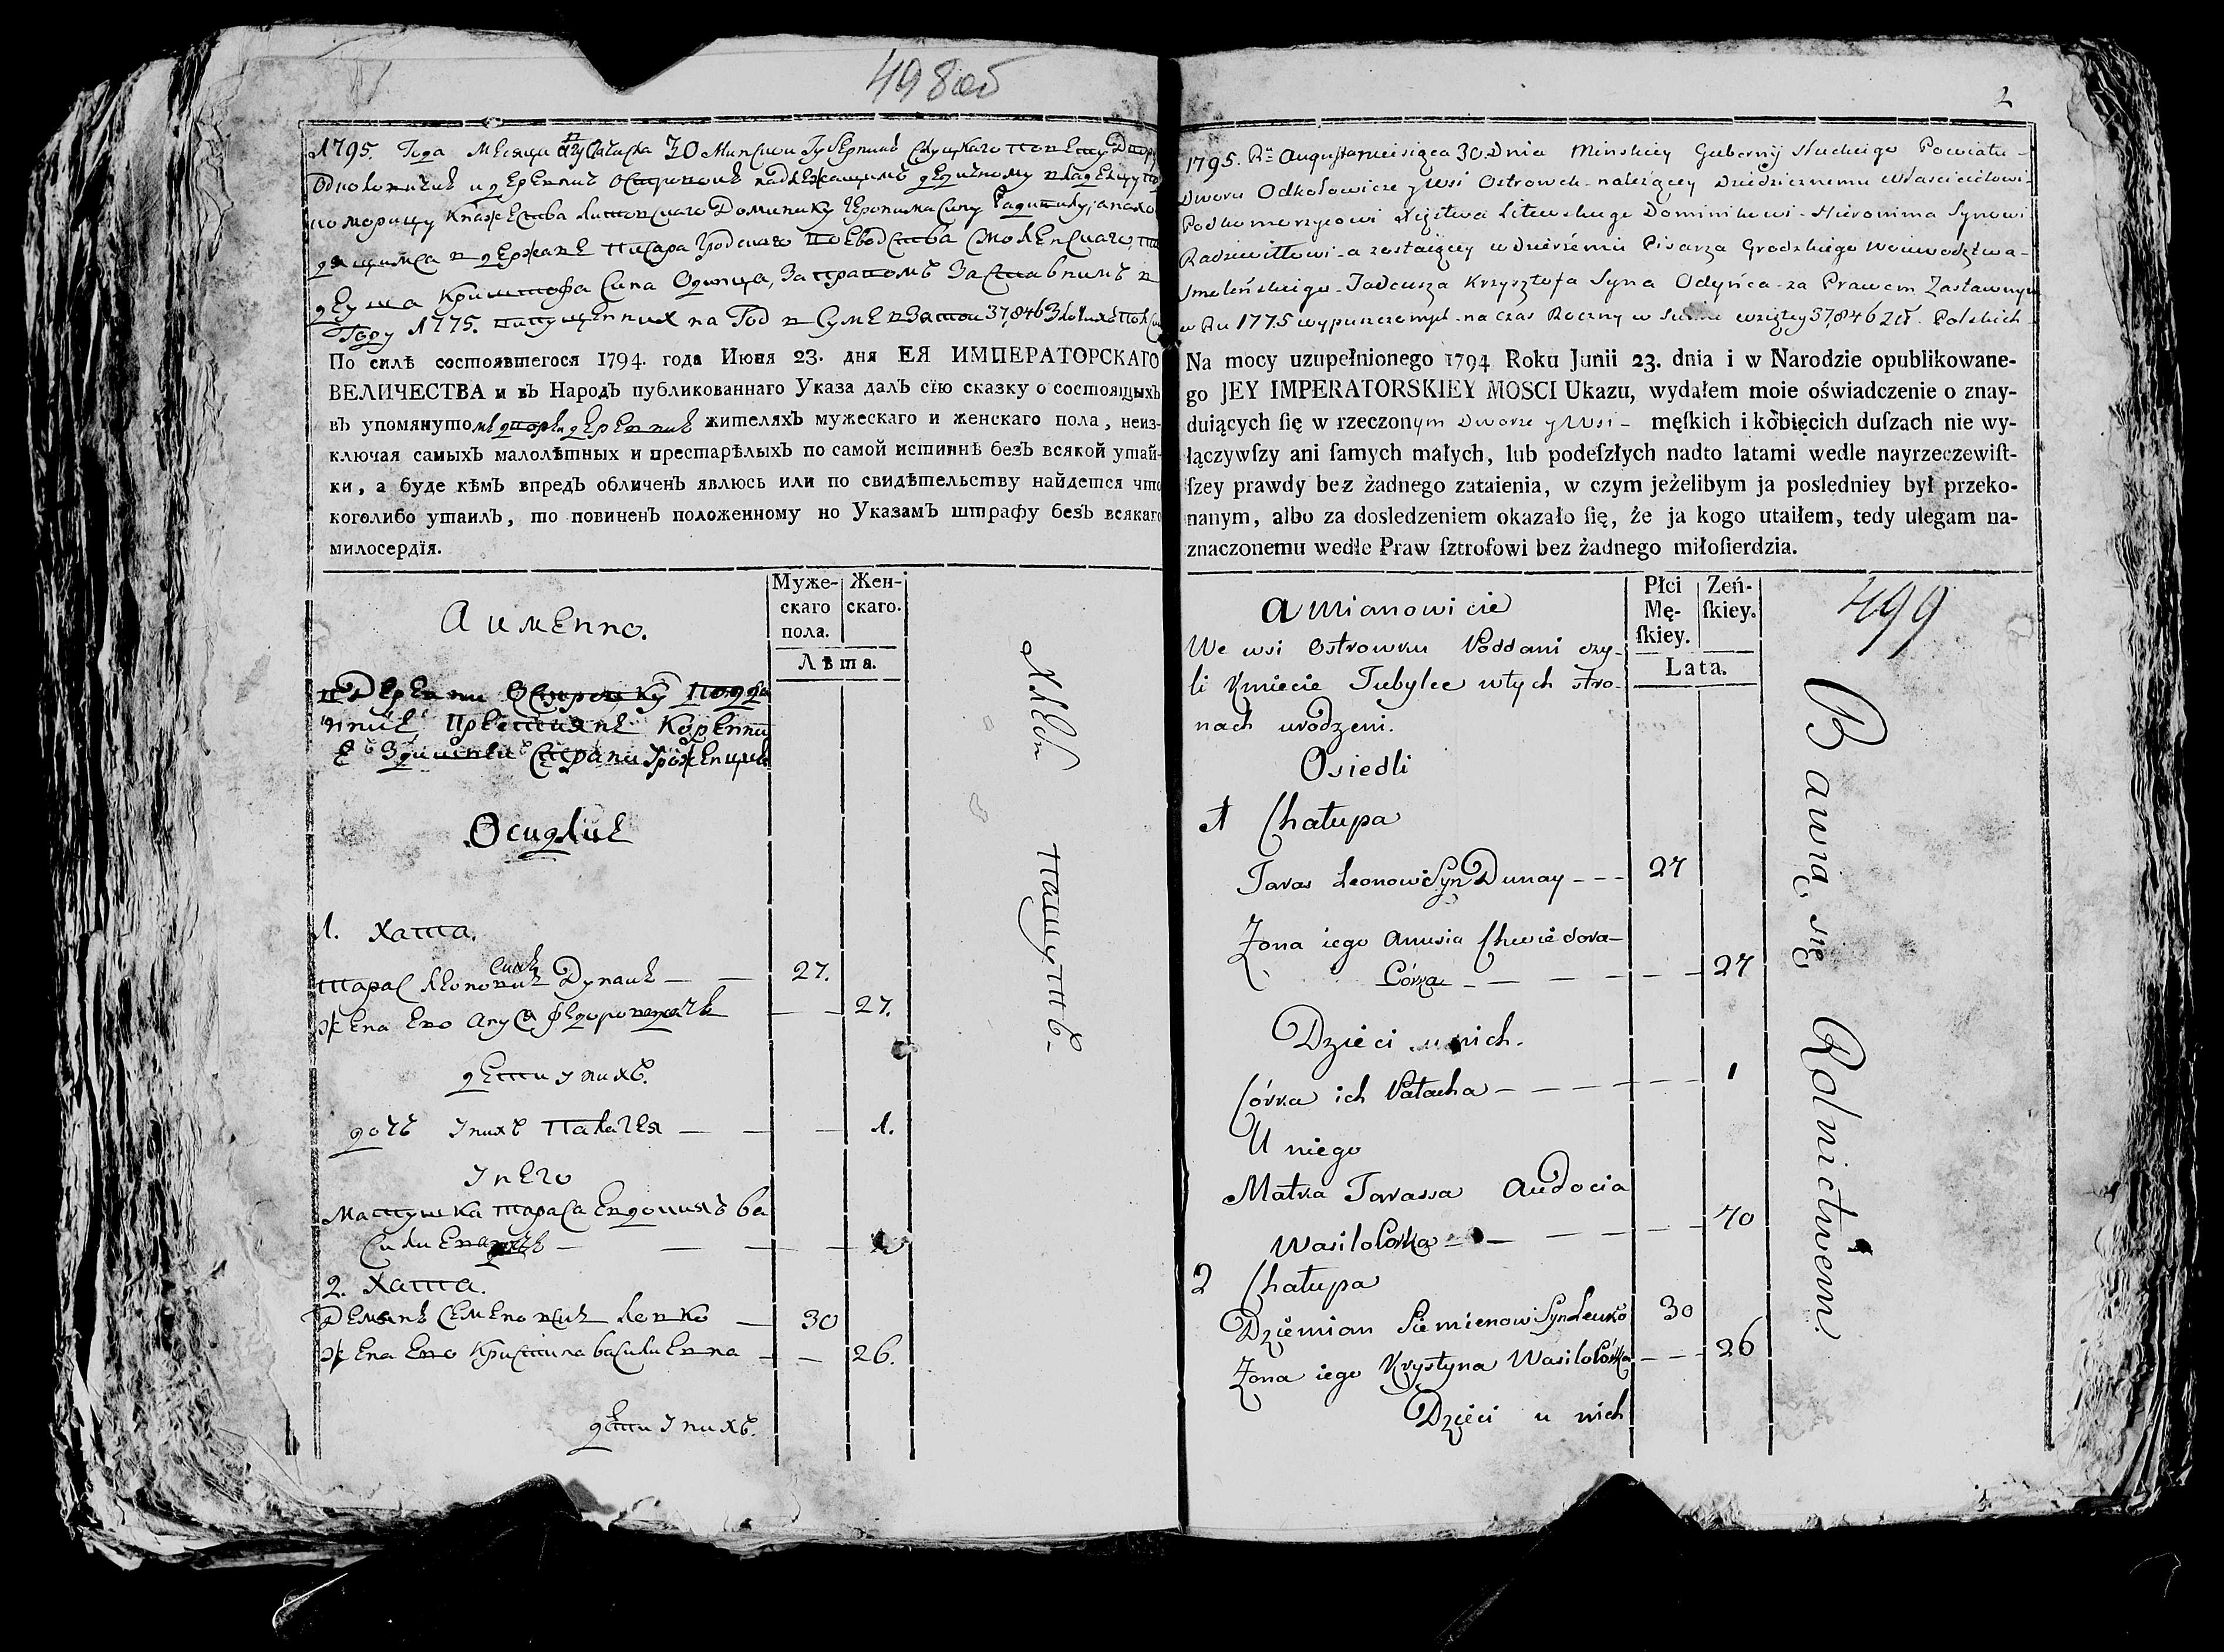 498об
1795. Года Месяца Августа 30 Минской Губернии Слуцкаго Двора
и деревни надлежащимъ дедичному
Княжества Литовскаго Доминику Геронима Сыну
Писара Гродскаго Воеводства Смоленскаго
Криштофа Сына Одинца, За правомъ Заставнимъ в
Году 1775. на Год в Суме 37,846
По силѣ состоявшегося 1794. года Июня 23. дня ЕЯ ИМПЕРАТОРСКАГО
ВЕЛИЧЕСТВА и въ Народъ публикованнаго Указа далъ сїю сказку о состоящихъ
въ упомянутомъ дворе и деревне жителяхъ мужескаго и женскаго пола, неиз-
ключая самыхъ малолѣтныхъ и престарѣлыхъ по самой истиннѣ безъ всякой утай-
ки, а буде кѣмъ впредъ обличенъ явлюсь или по свидѣтельству найдется что
коголибо утаилъ, то повиненъ положенному по Указамъ штрафу безъ всякаго
милосердїя.
А именно.
Муже-
скаго
пола.
Жен-
скаго.
Лѣта.
в Деревни Островку
Осидлие
1. Хата.
Тарас Леонов Синъ Дунай 27.
Жена Ево Федорова 27.
дети у нихъ.
дочь у нихъ Палагея 1.
У Него
Матушка Тараса
2. Хата.
Демян Левко 30
Жена Ево Кристина Василевна 26.
дети у нихъ.
Хлебо
пашутъ
2
1795. Rū Augusta miesiąca 30. Dnia Minskiey Gubernij Słuckiego Powiatu
Dworu Odkołowicze y Wsi Ostrowek należącey Dziedzicznemu Włascicielowi
Podkomorzycowi Xięstwa Litewskiego Dominikowi Hieronima Synowi
Radziwiłłowi a zostaiącey w Dzierżeniu Pisarza Grodzkiego Woiewodztwa
Smoleńskiego Tadeusza Krzysztofa Syna Odyńca za Prawem Zastawnym
w Ru 1775 wypuszczonych na czas Roczny w Sumie wziętey 37,846 Zł. Polskich
Na mocy uzupełnionego 1794 Roku Junii 23. dnia i w Narodzie opublikowane-
go JEY IMPERATORSKIEY MOSCI Ukazu, wydałem moie oświadczenie o znay-
duiących ſię w rzeczonym Dworze y Wsi męſkich i kobięcich duſzach nie wy-
łączywſzy ani ſamych małych, lub podeſzłych nadto latami wedle nayrzeczewiſt-
ſzey prawdy bez żadnego zataienia, w czym jeżelibym ja posledniey był przeko-
nanym, albo za dosledzeniem okazało ſię, że ja kogo utaiłem, tedy ulegam na-
znaczonemu wedle Praw ſztrofowi bez żadnego miłoſierdzia.
a mianowicie
Płci
Mę-
ſkiey.
Zeń-
ſkiey.
Lata.
499
We wsi Ostrowku Poddani czy-
li Kmiecie Tubylce w tych stro-
nach urodzeni.
Osiedli
1 Chałupa
Taras Leonow Syn Dunay 27
Zona iego Anusia Chwiedora
Córka 27
Dzieci u nich.
Córka ich Pałacha 1
U niego
Matka Tarassa Audocia
Wasila Córka 70
2 Chałupa
Dziemian Siemienow Syn Lewko 30
Zona iego Krystyna Wasila Córka 26
Dzieci u nich
Bawią się Rolnictwem.